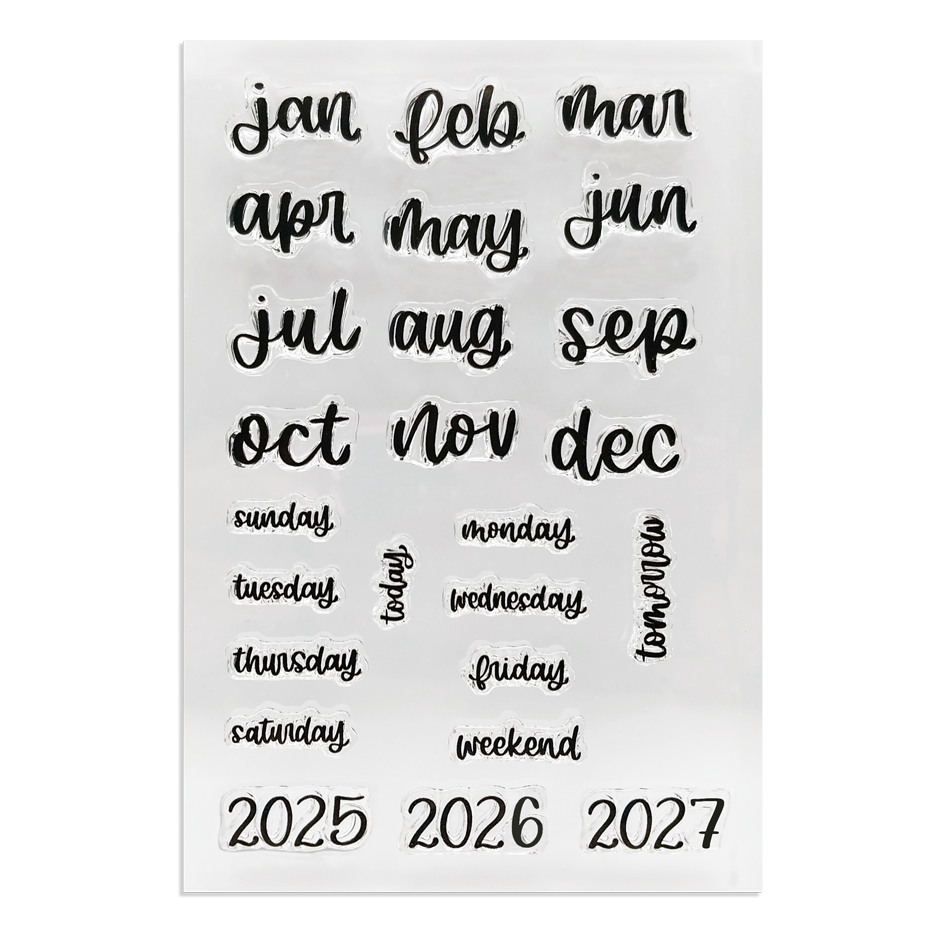 jan feb mar
apr may jun
jul aug sep
oct nov dec
sunday monday
today tomorrow
tuesday wednesday
thursday friday
saturday weekend
2025 2026 2027